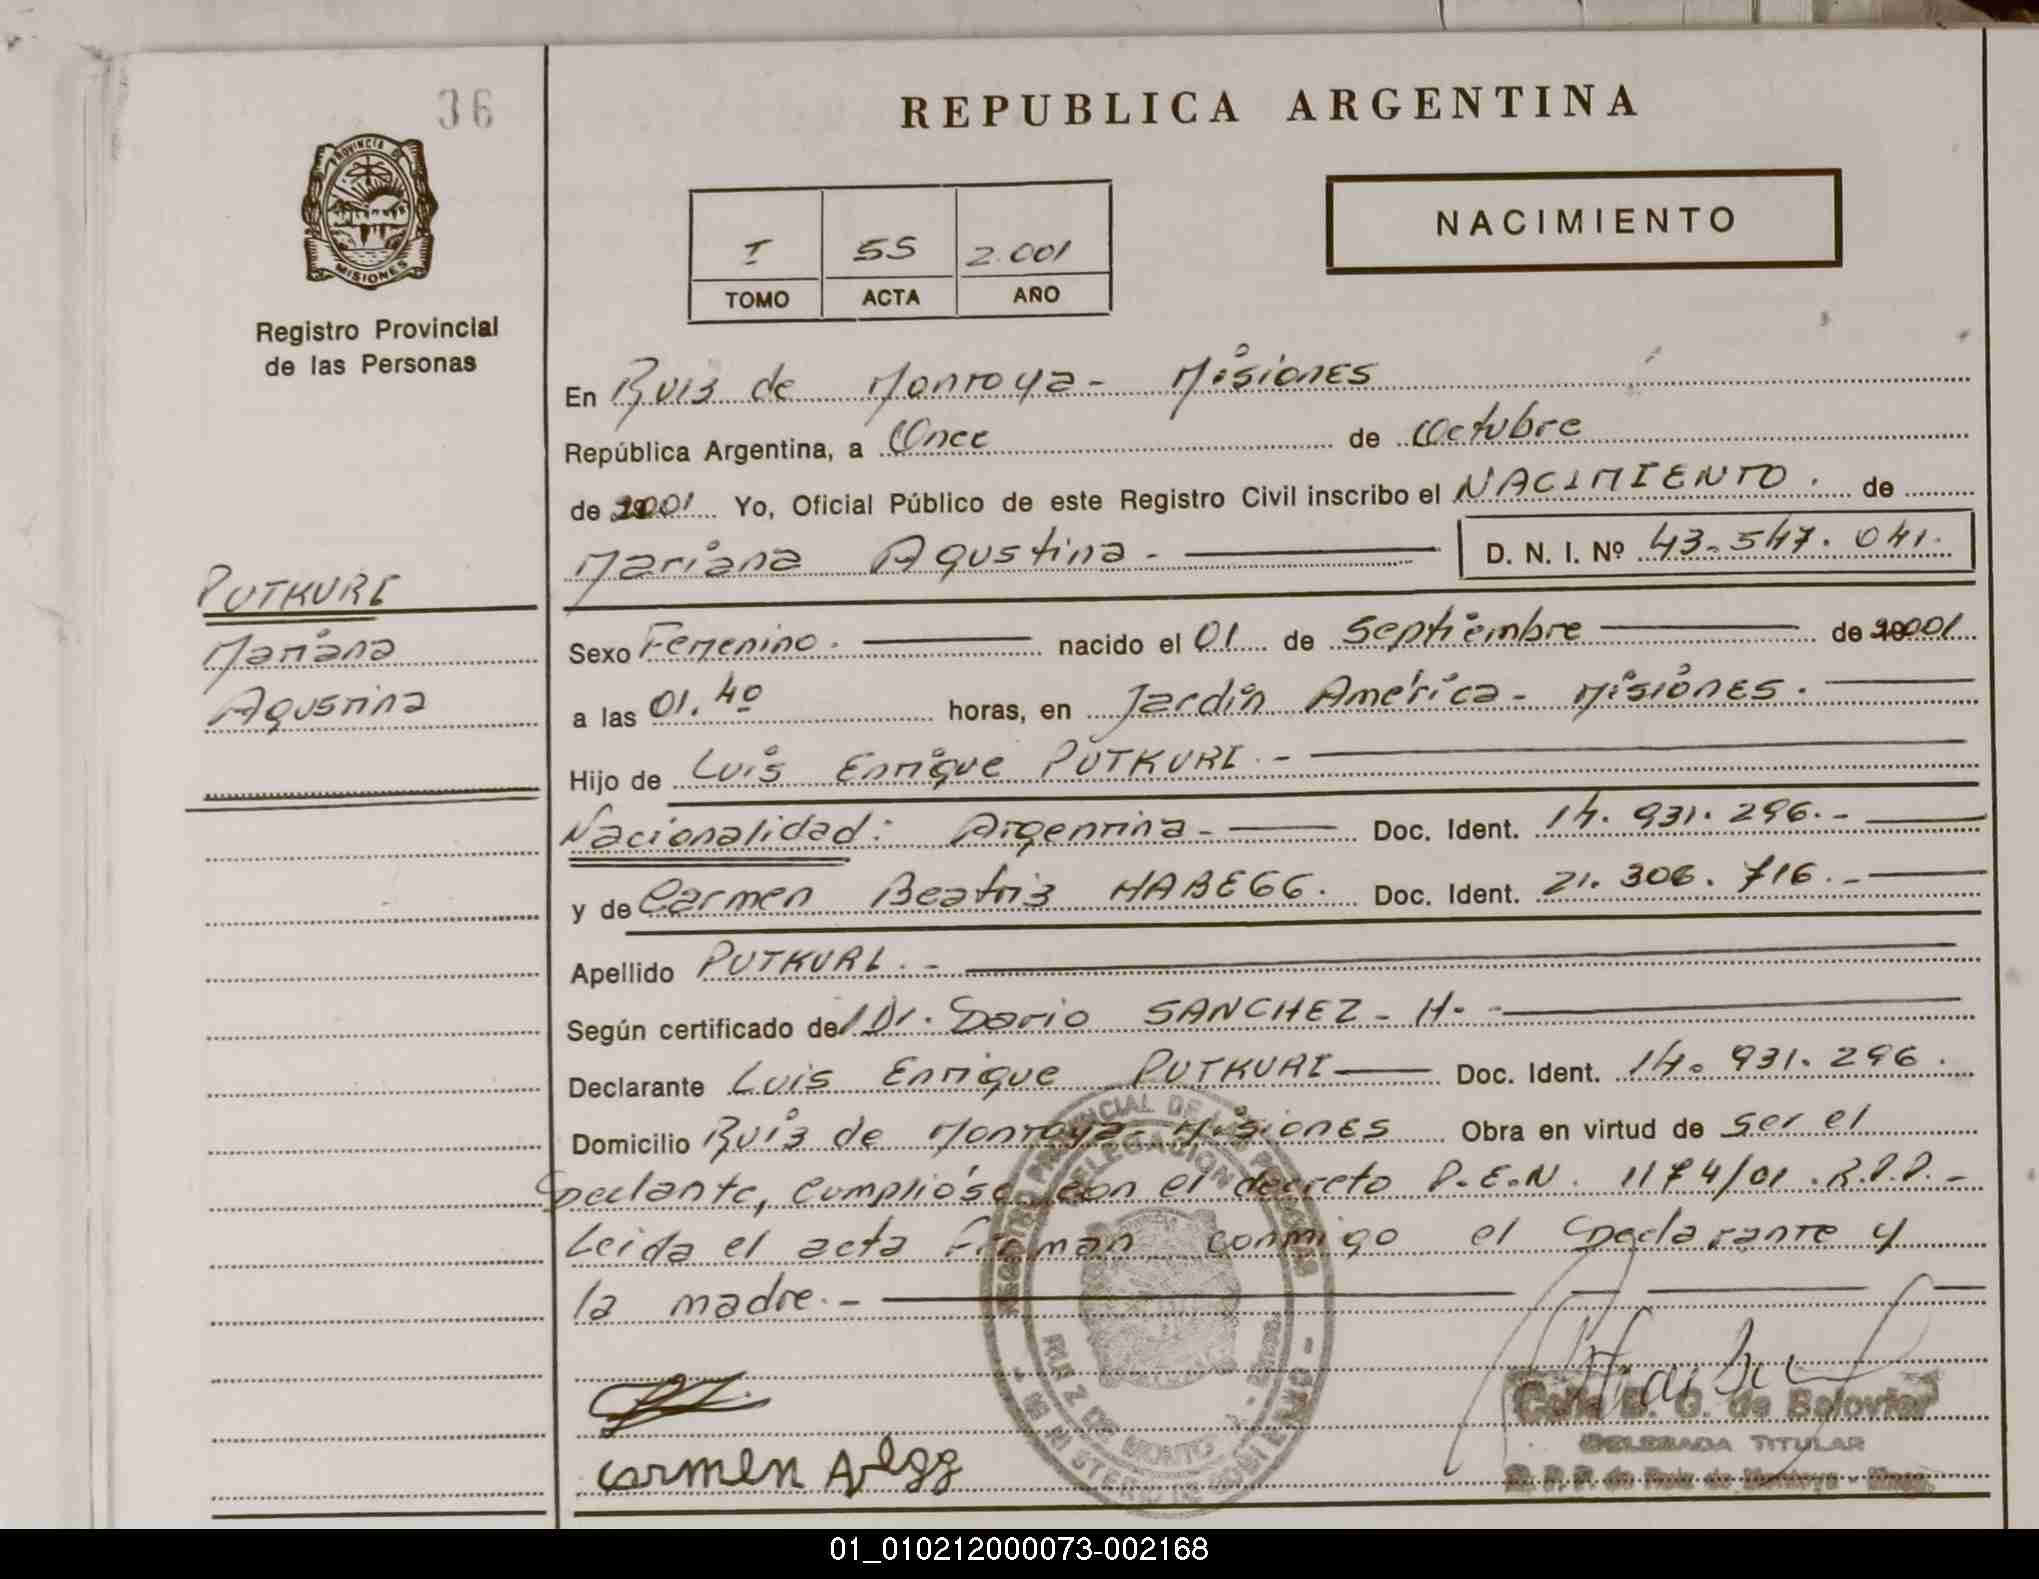 36
REPUBLICA ARGENTINA
PROVINCIA DE
MISIONES
Registro Provincial
de las Personas
I 55 2.001
TOMO ACTA AÑO
NACIMIENTO
En Ruiz de Montoya - Misiones
República Argentina, a Once de Octubre
de 2001 Yo, Oficial Público de este Registro Civil inscribo el NACIMIENTO. de
Mariana Agustina - D. N. I. Nº 43.547.041.
PUTKURI
Mariana
Agustina
Sexo Femenino. nacido el 01 de Septiembre de 2001
a las 01.40 horas, en Jardín América - Misiones.
Hijo de Luis Enrique PUTKURI. -
Nacionalidad: Argentina - Doc. Ident. 14.931.296.-
y de Carmen Beatriz HABEGG. Doc. Ident. 21.306.716.-
Apellido PUTKURI. -
Según certificado de Dr. Dario SANCHEZ - H. -
Declarante Luis Enrique PUTKURI Doc. Ident. 14.931.296.
Domicilio Ruiz de Montoya - Misiones Obra en virtud de ser el
Declante, cumplióse con el decreto P.E.N. 1174/01. R.P.P. -
Leida el acta Firman conmigo el Declarante y
la madre. -
REGISTRO PROVINCIAL DE LAS PERSONAS
DELEGACION
RUIZ DE MONTOYA
Carmen
Celia B. G. de
DELEGADA TITULAR
R. P. P. de Ruiz de Montoya - Mnes.
01_010212000073-002168